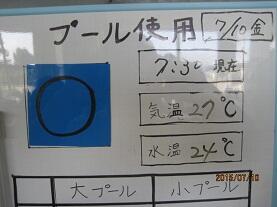 プール使用 7/10 金
7:30 現在
気温 27℃
水温 24℃
大プール 小プール
2015/07/10